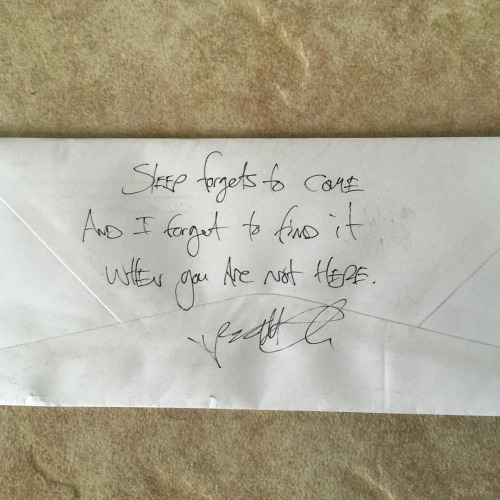 Sleep forgets to come
And I forget to find it
When you are not here.